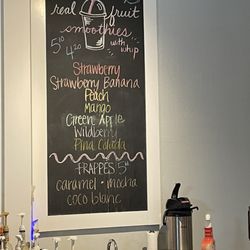 real fruit
smoothies...
with whip
5¹⁰ 4²⁰
Strawberry
Strawberry Banana
Peach
Mango
Green Apple
Wildberry
Pina Colada
FRAPPES 5¹⁰
caramel • mocha
coco blanc